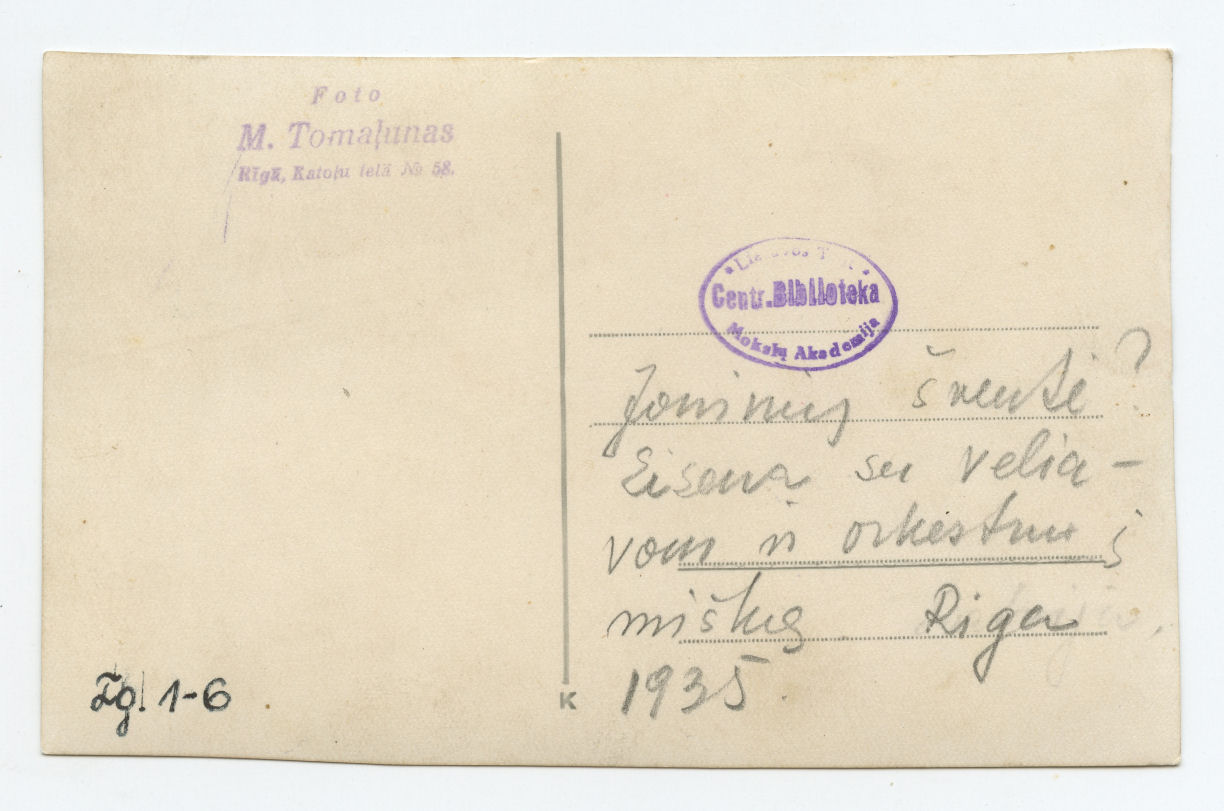 Foto
M. Tomaļunas
Rīgā, Katoļu ielā № 58.
Centr. Biblioteka
Mokslų Akademija
Joninių šventė ?
Eisena su vėlia-
vom ir orkestru į
mišką Riga
1935
K
Ig. 1-6